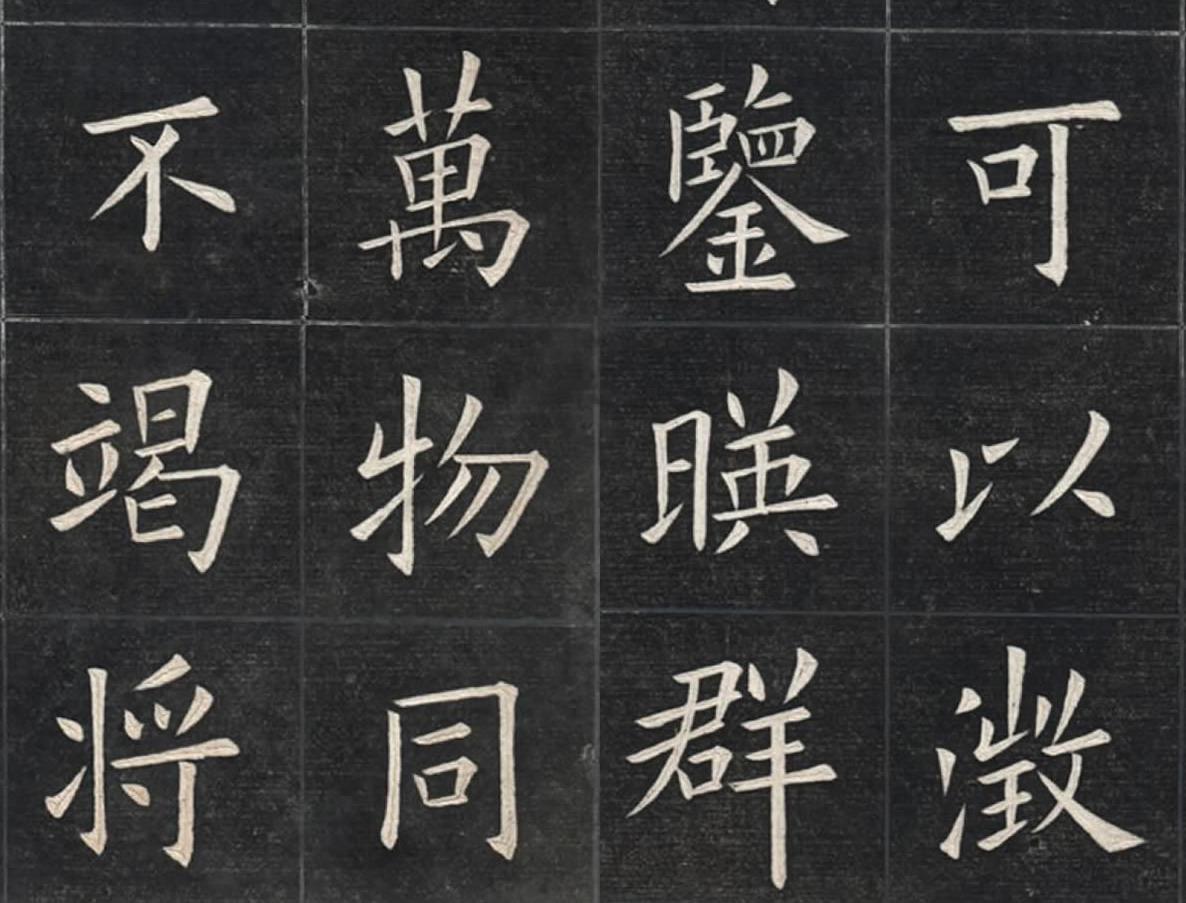 可以澂
鑒暎群
萬物同
不竭将